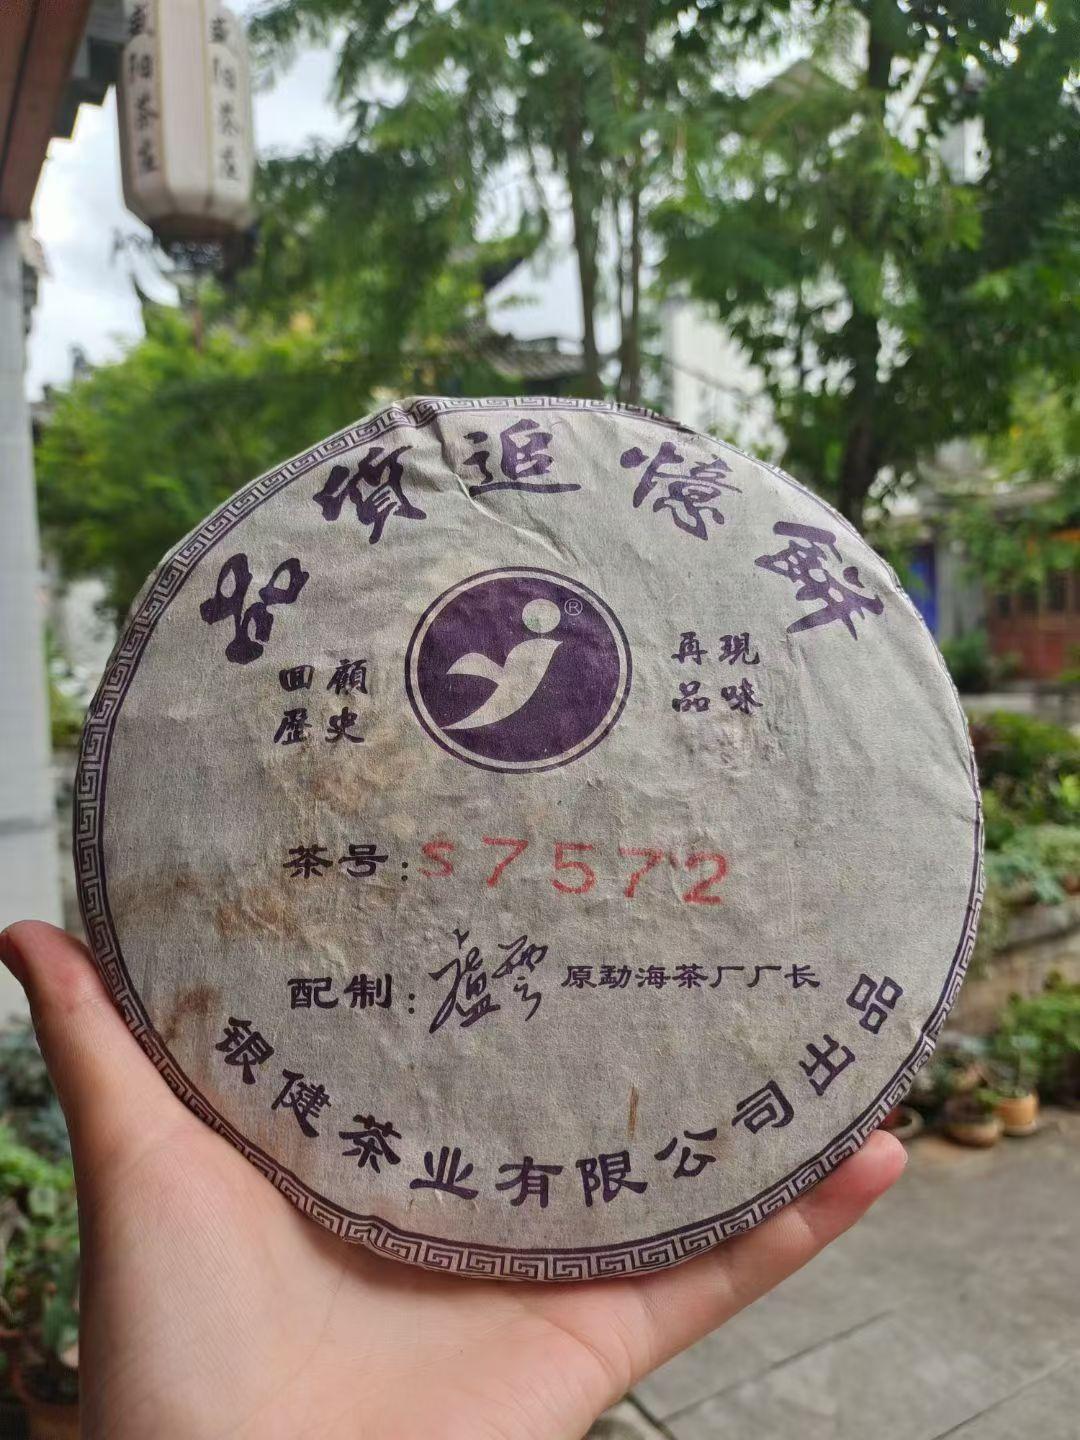 盛阳茶庄
品質追憶餅
®
回顧
歷史
再現
品味
茶号:S7572
配制:盧雲 原勐海茶厂厂长
银健茶业有限公司出品